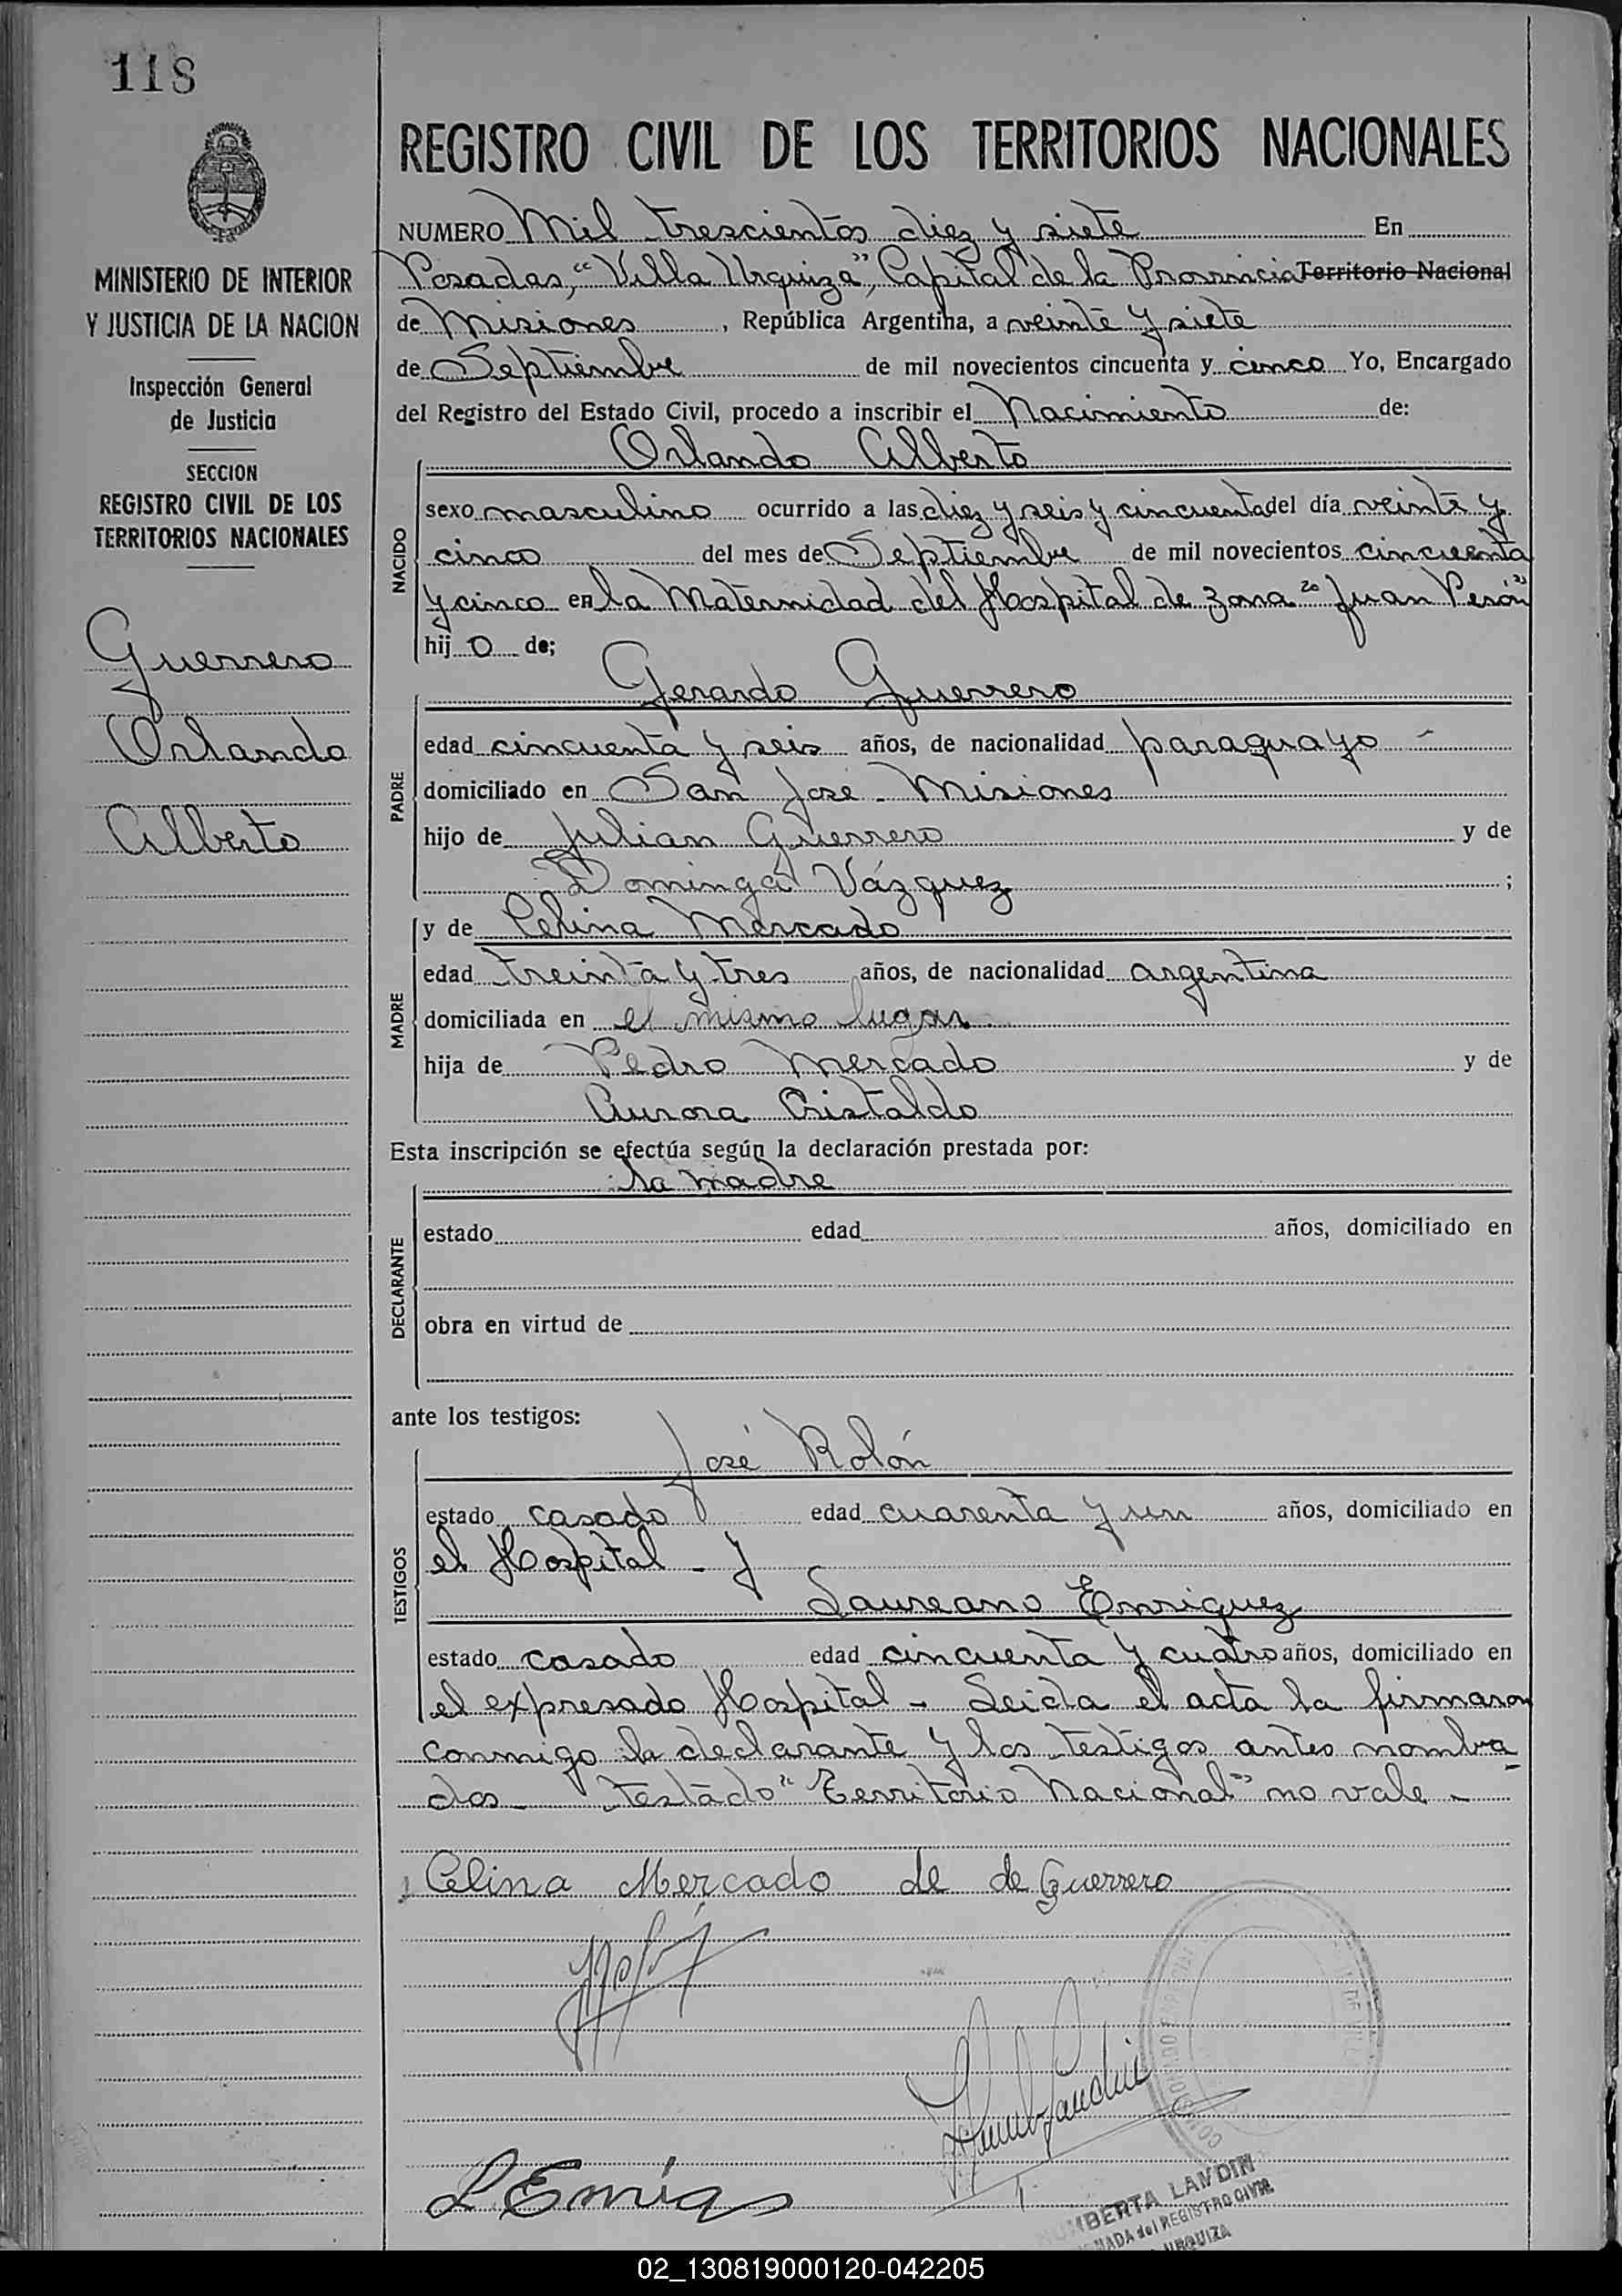 118
MINISTERIO DE INTERIOR
Y JUSTICIA DE LA NACION
Inspección General
de Justicia
SECCION
REGISTRO CIVIL DE LOS
TERRITORIOS NACIONALES
Guerrero
Orlando
Alberto
REGISTRO CIVIL DE LOS TERRITORIOS NACIONALES
NUMERO Mil trescientos diez y siete En
Posadas, "Villa Urquiza", Capital de la Provincia Territorio Nacional
de Misiones, República Argentina, a veinte y siete
de Septiembre de mil novecientos cincuenta y cinco Yo, Encargado
del Registro del Estado Civil, procedo a inscribir el Nacimiento de:
Orlando Alberto
NACIDO
sexo masculino ocurrido a las diez y seis y cincuenta del día veinte y
cinco del mes de Septiembre de mil novecientos cincuenta
y cinco en la Maternidad del Hospital de zona "Juan Perón"
hij o de;
Gerardo Guerrero
PADRE
edad cincuenta y seis años, de nacionalidad paraguayo -
domiciliado en San José - Misiones
hijo de Julian Guerrero y de
Dominga Vázquez ;
y de Celina Mercado
MADRE
edad treinta y tres años, de nacionalidad argentina
domiciliada en el mismo lugar
hija de Pedro Mercado y de
Aurora Cristaldo
Esta inscripción se efectúa según la declaración prestada por:
la madre
DECLARANTE
estado edad años, domiciliado en
obra en virtud de
ante los testigos:
José Rolón
TESTIGOS
estado casado edad cuarenta y un años, domiciliado en
el Hospital - y
Laureano Enriquez
estado casado edad cincuenta y cuatro años, domiciliado en
el expresado Hospital - Leida el acta la firmaron
conmigo la declarante y los testigos antes nombra
dos - Testado "Territorio Nacional" no vale -
Celina Mercado de de Guerrero
L Enriq
HUMBERTA LANDIN
del REGISTRO CIVIL
URQUIZA
02_130819000120-042205